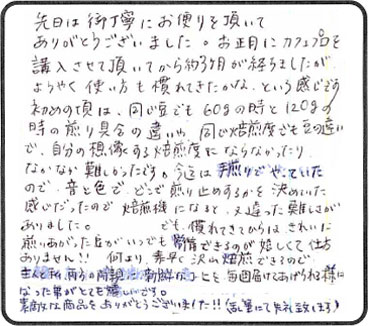 先日は御丁寧にお便りを頂いて
ありがとうございました。お正月にカフェプロを
購入させて頂いてから約3ヶ月が経ちましたが
ようやく使い方も慣れてきたかな、という感じです
初めの頃は、同じ豆でも60gの時と120gの
時の煎り具合の違いや、同じ焙煎度でも豆の違い
で、自分の想像する焙煎度にならなかったり、
なかなか難しかったです。今迄は手煎りでやっていた
ので、音と色で、どこで煎り止めするかを決めていた
感じだったので焙煎機になると、又違った難しさが
ありました。でも、慣れてきてからは、きれいに
煎りあがった豆がいつでも できるのが嬉しくて仕方
ありません!! 何より、素早く沢山焙煎できるので、
新鮮な を毎回届けてあげられる様に
なった事がとても嬉しいです。
素敵な商品をありがとうございました!!(乱筆にて失礼致します)